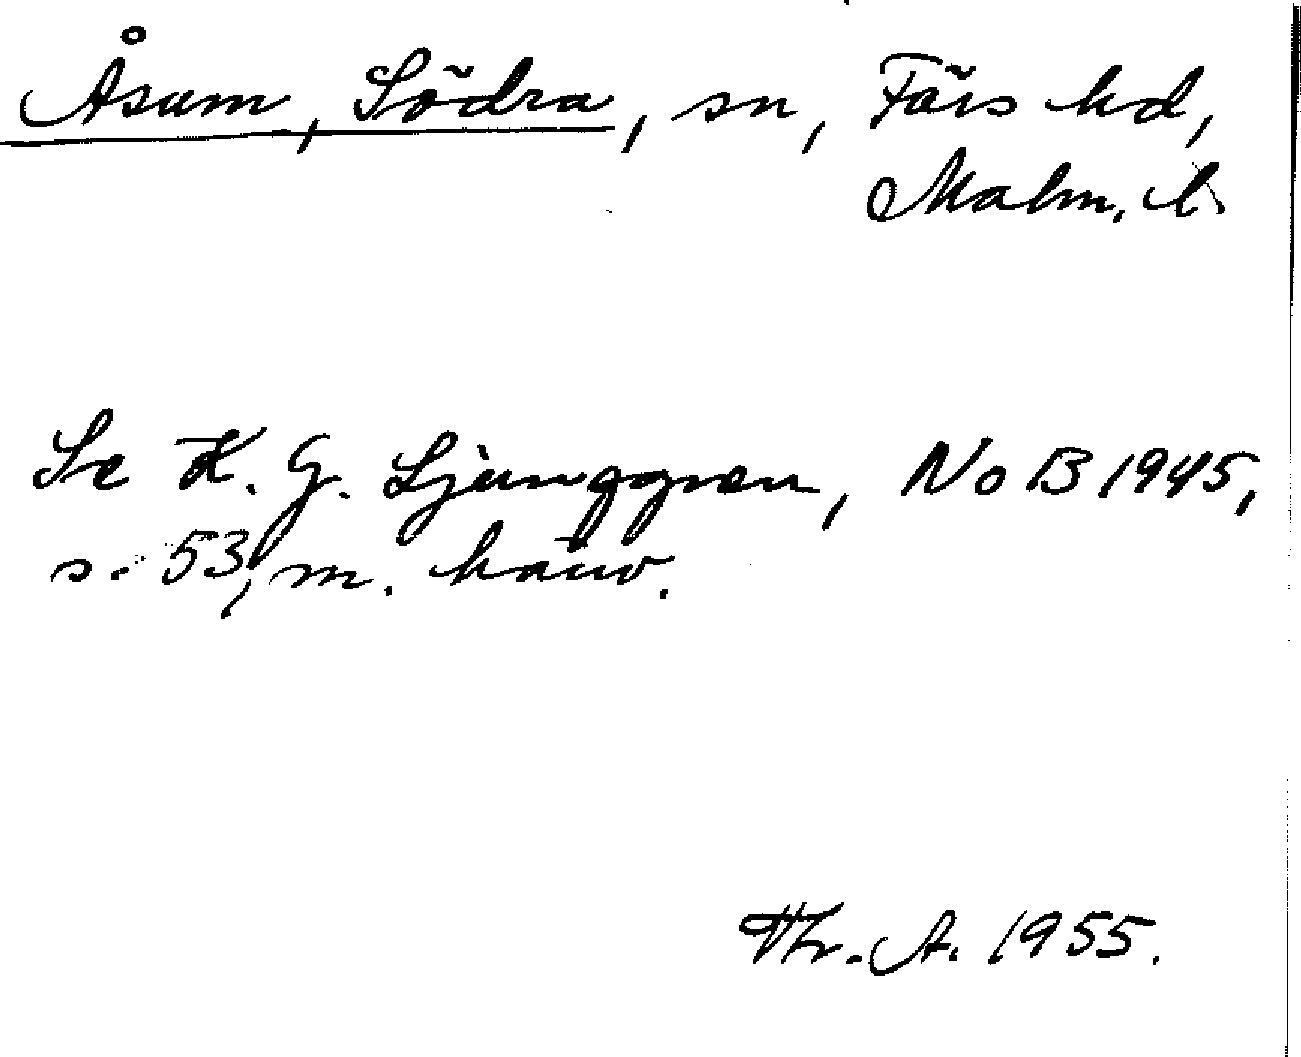 Åsum, Södra, sn, Färs hd,
Malm. l.
Se K. G. Ljunggren, NoB 1945,
s. 53, m. hänv.
Thr. A. 1955.